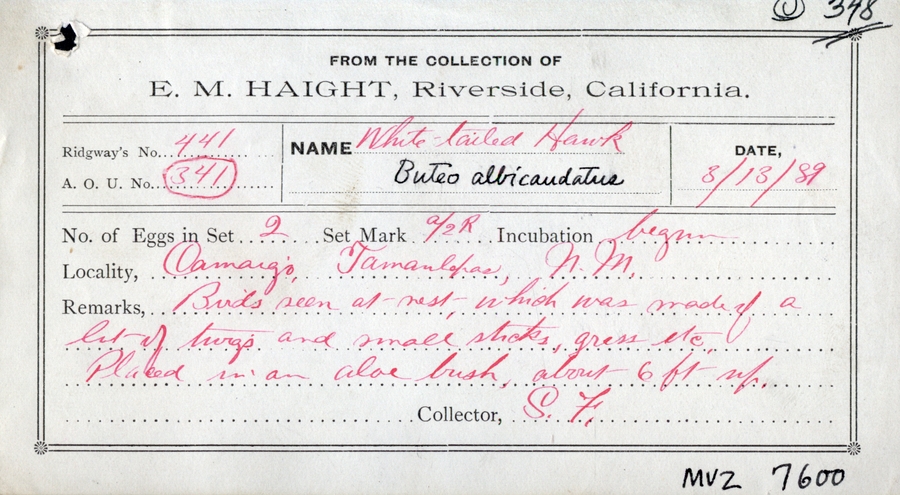 ① 348
FROM THE COLLECTION OF
E. M. HAIGHT, Riverside, California.
Ridgway's No. 441
A. O. U. No. 341
NAME White-tailed Hawk
Buteo albicaudatus
DATE,
3/13/89
No. of Eggs in Set 2 Set Mark a/2R Incubation begun
Locality, Camargo, Tamaulipas, N. M.
Remarks, Birds seen at nest, which was made of a
lot of twigs and small sticks, grass etc.
Placed in an aloe bush, about 6 ft up.
Collector, S. F.
MVZ 7600